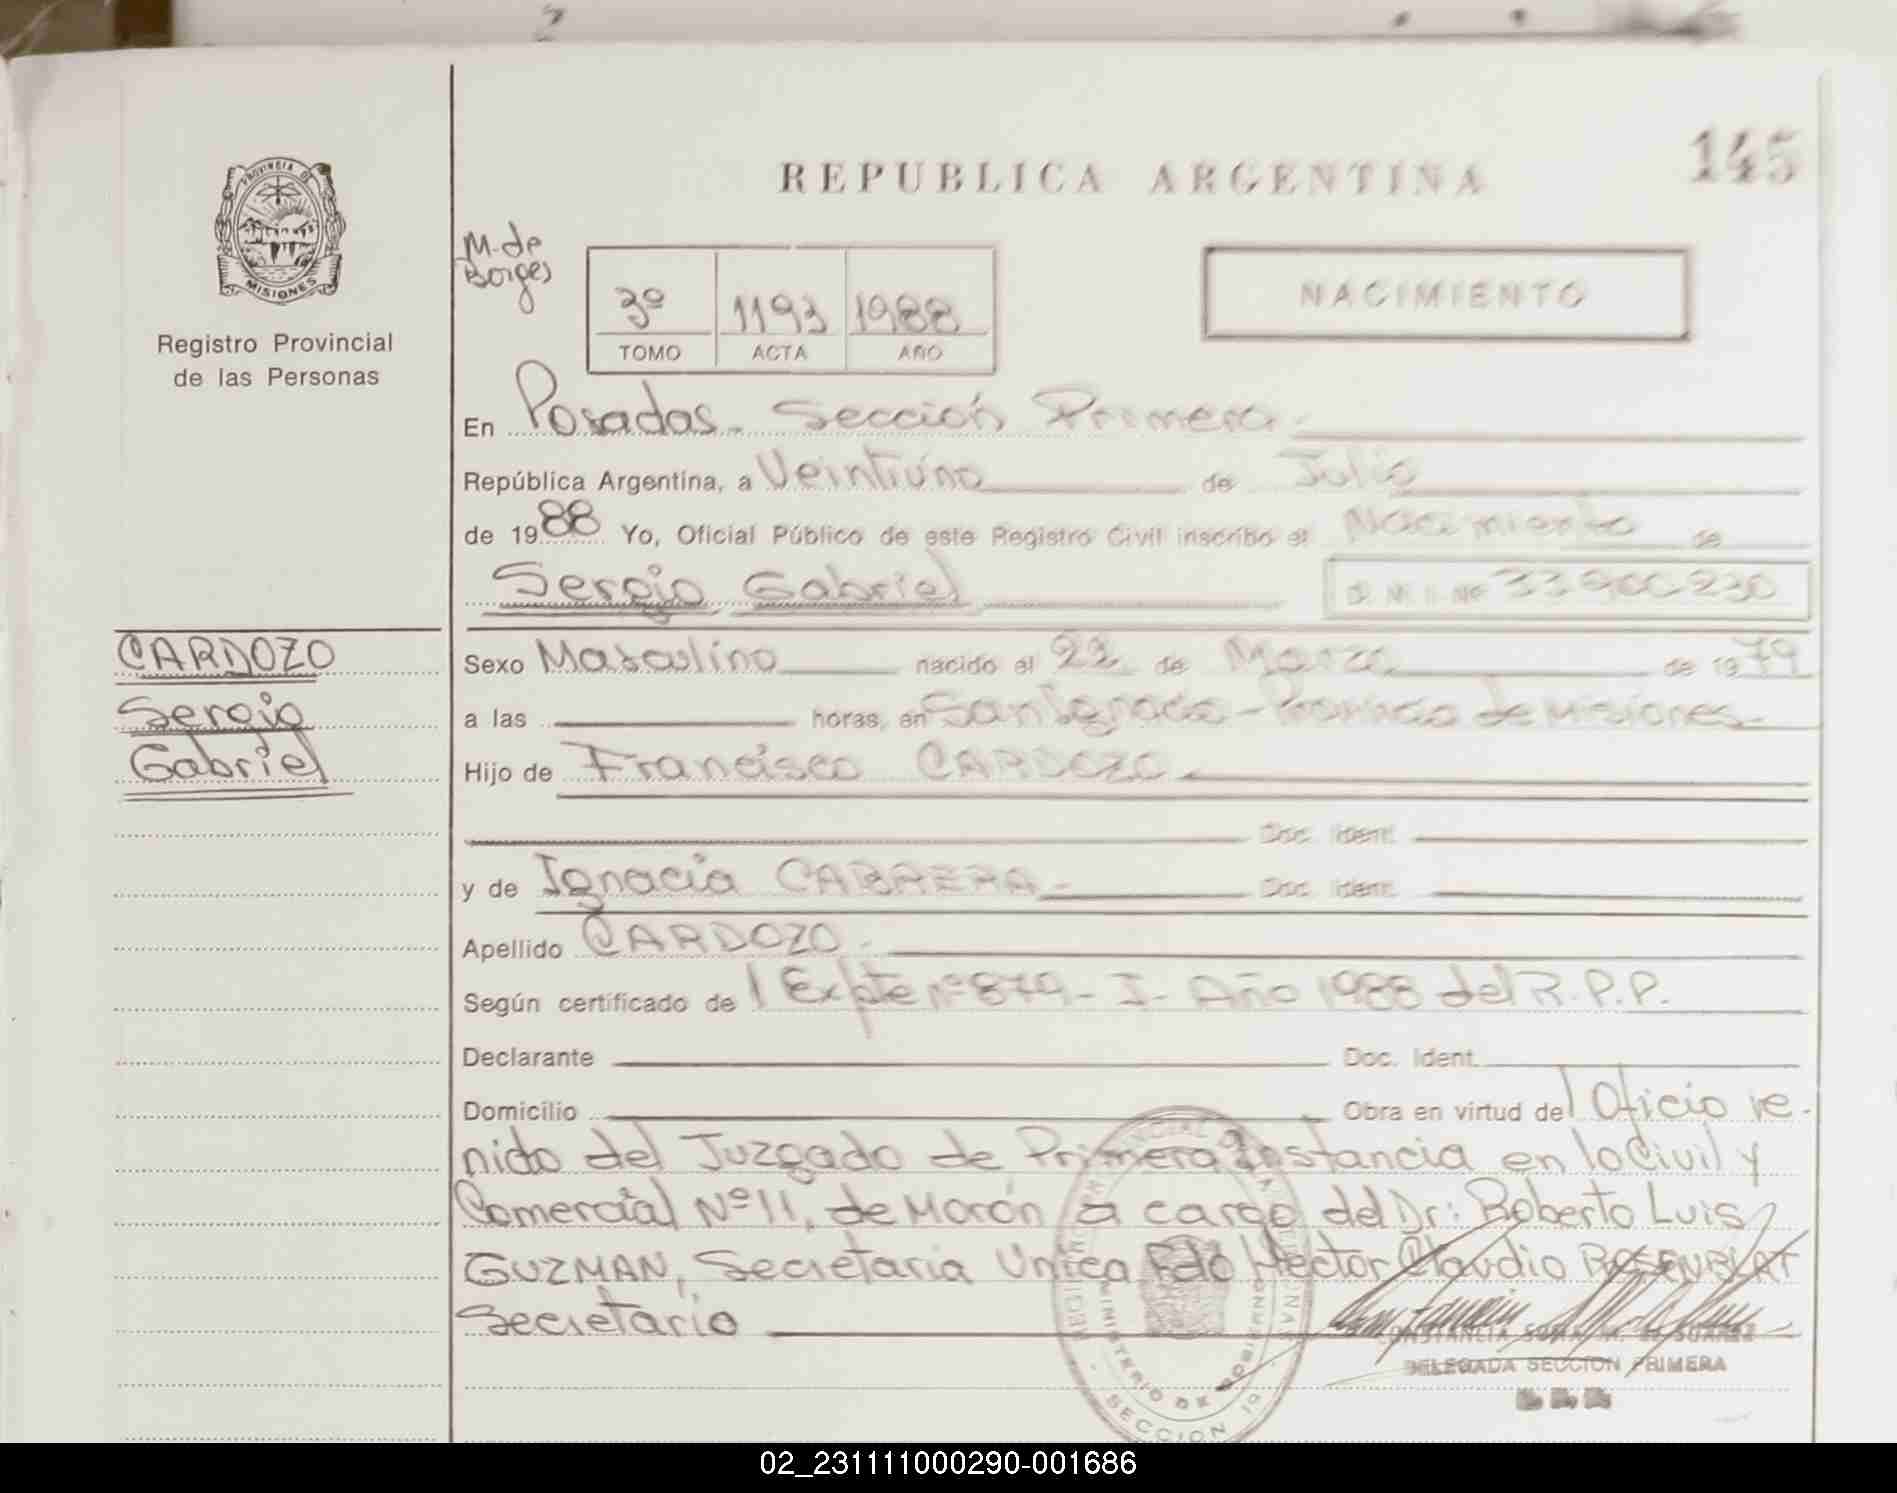 145
REPUBLICA ARGENTINA
PROVINCIA DE
MISIONES
Registro Provincial
de las Personas
M. de
Borges
3º 1193 1988
TOMO ACTA AÑO
NACIMIENTO
En Posadas - Sección Primera -
República Argentina, a Veintiúno de Julio
de 1988 Yo, Oficial Público de este Registro Civil inscribo el Nacimiento de
Sergio Gabriel D.N.I. Nº 33900230
CARDOZO
Sergio
Gabriel
Sexo Masculino nacido el 22 de Marzo de 1979
a las horas, en San Ignacio - Provincia de Misiones -
Hijo de Francisco CARDOZO
Doc. Ident.
y de Ignacia CABRERA - Doc. Ident.
Apellido CARDOZO -
Según certificado de l Expte nº 879 - I - Año 1988 del R.P.P.
Declarante Doc. Ident.
Domicilio Obra en virtud de l Oficio ve-
nido del Juzgado de Primera Instancia en lo Civil y
Comercial Nº 11, de Morón a cargo del Dr: Roberto Luis
GUZMAN, Secretaria Unica Fdo Hector Claudio ROSENBLAT
Secretario
CONSTANCIA M. de SUAREZ
DELEGADA SECCION PRIMERA
MINISTERIO DE GOBIERNO
SECCION 1º
02_231111000290-001686